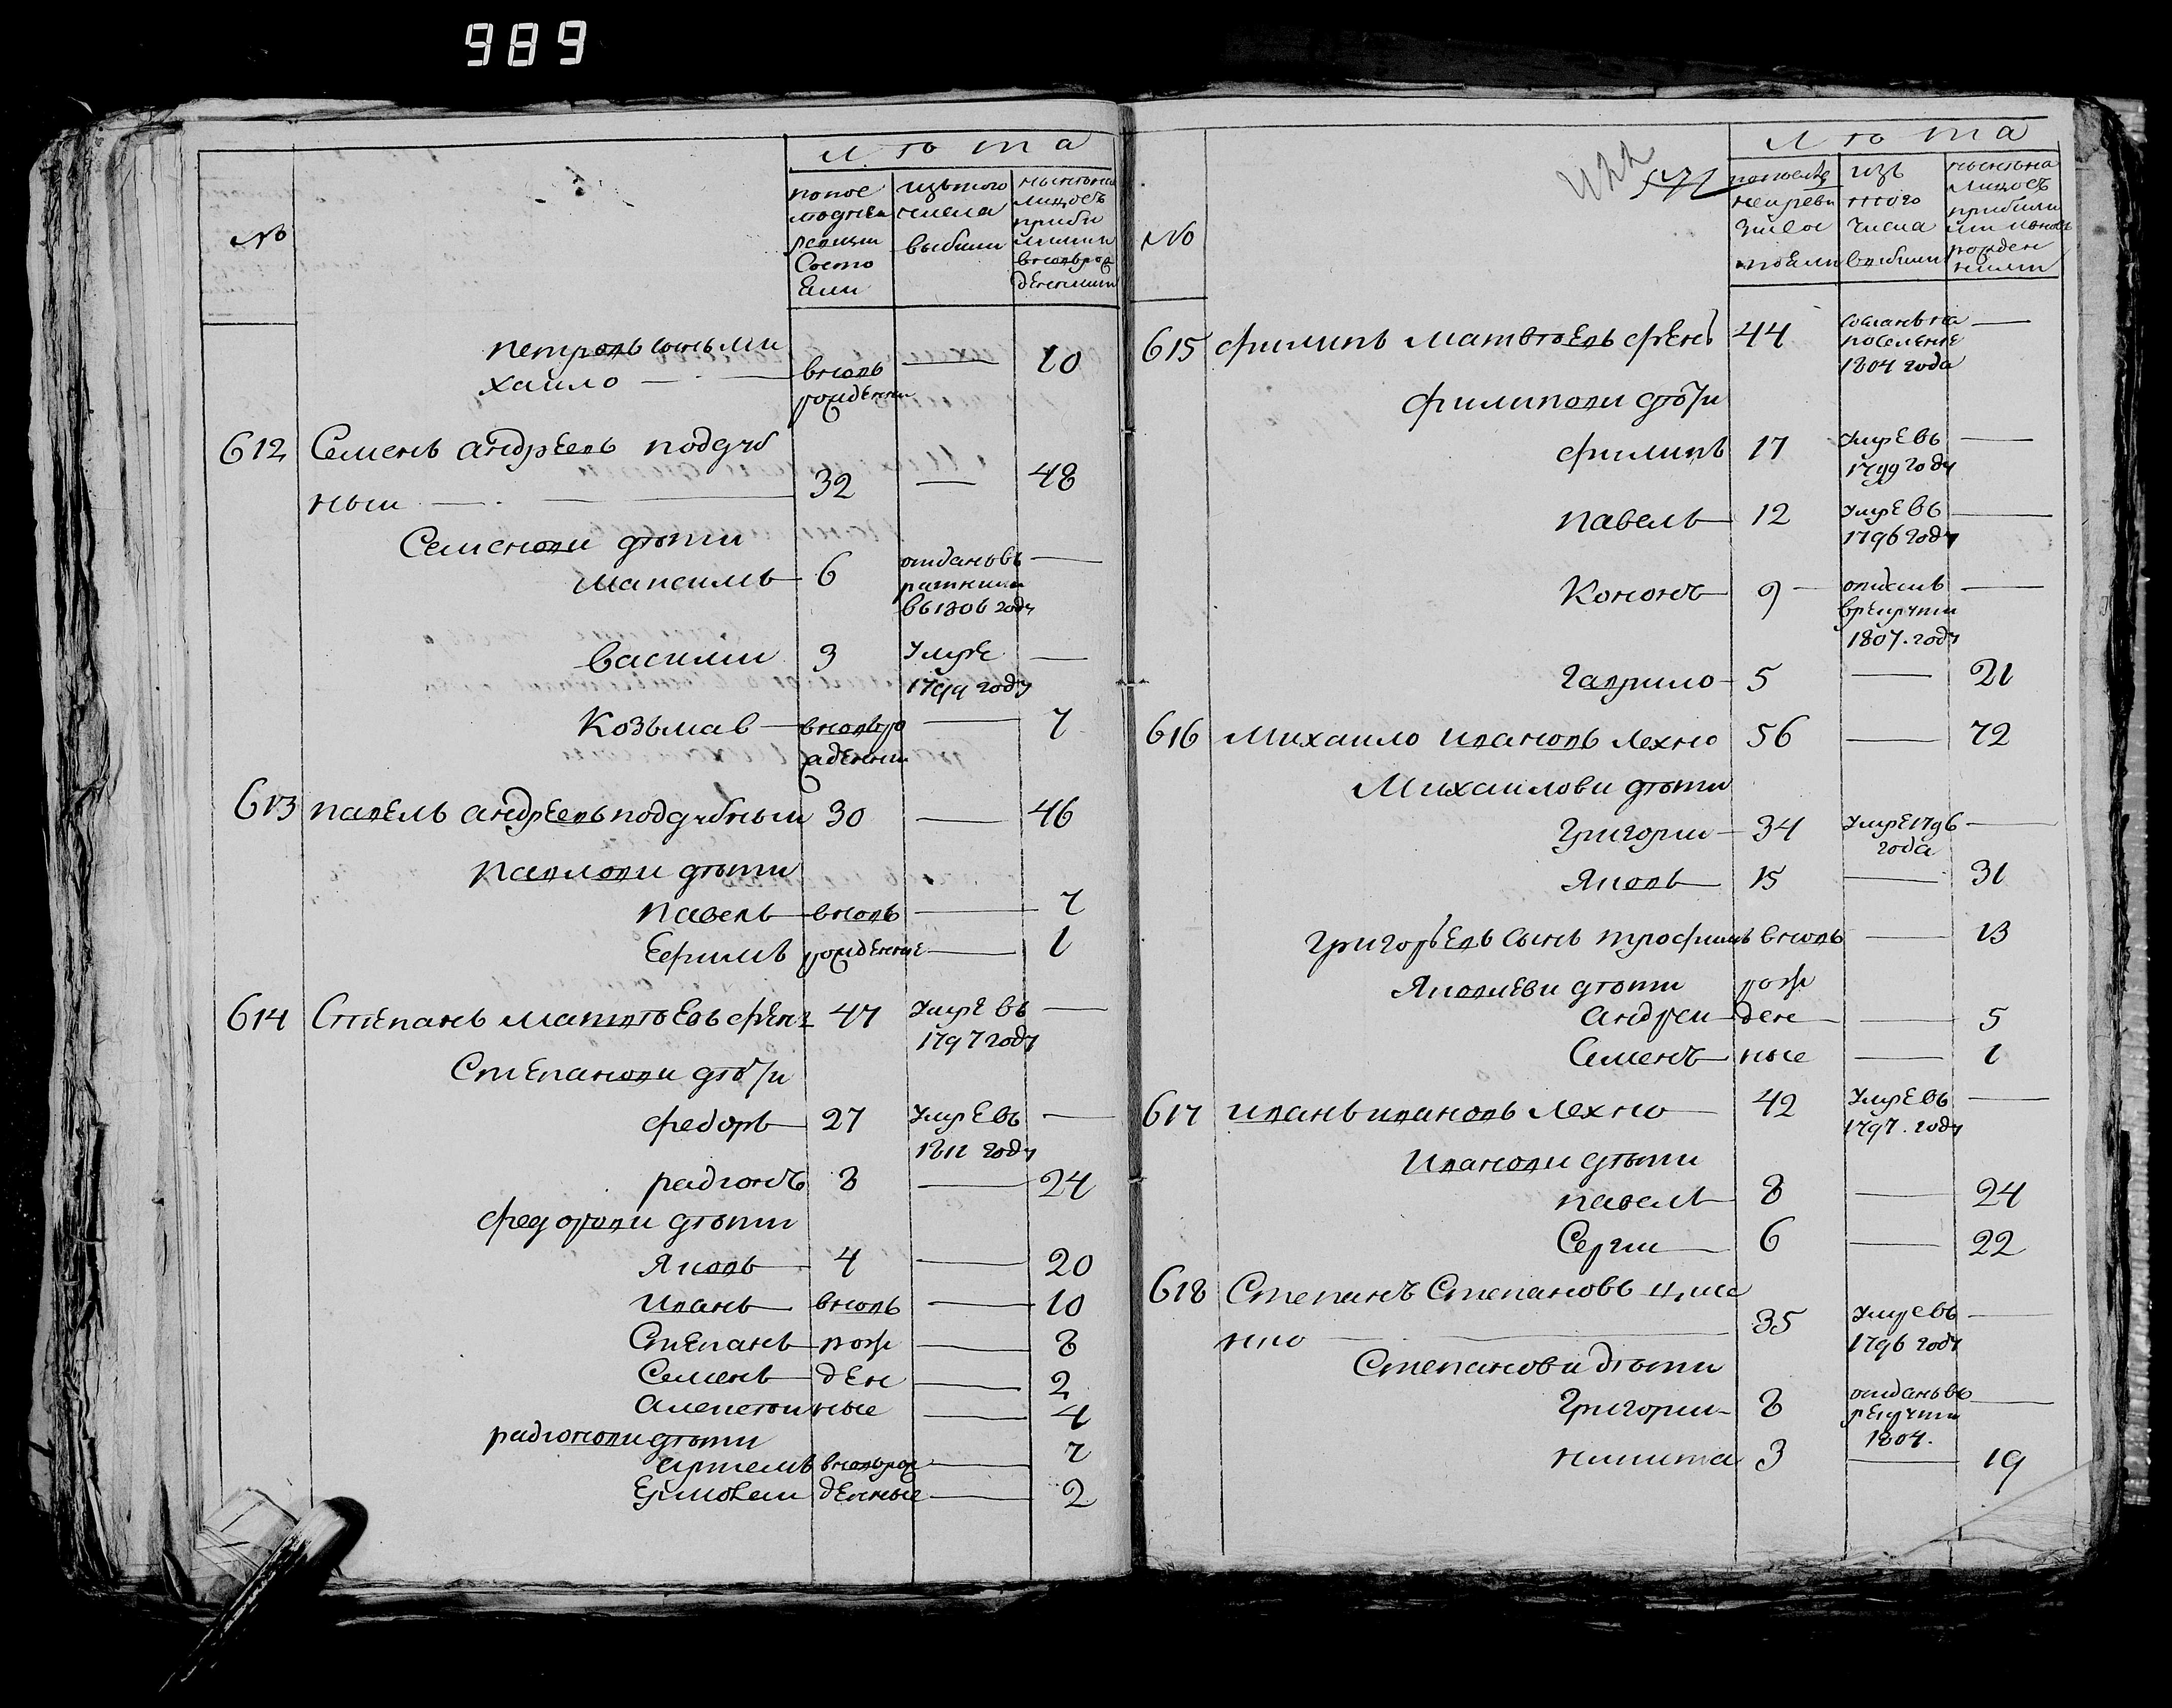 989
Лѣта
№
по пос
ледней
ревизии
Состо
Яли
изътого
числа
выбыли
ныне на
лицосъ
прибы
лыми
вновьрож
денными
Петровъ сынъ Ми
хаило — вновь рожденни — 10
612 Семенъ андрѣевъ поддуб
ныи — 32 — 48
Семенови дѣти
Максимъ 6 отданъ въ ратники въ 1806 году —
Василии 3 умре 1799 году —
Козьмав — вновь ро жденни — 7
613 павелъ андреевъ поддубныи 30 — 46
Павлови дѣти
Павелъ — вновь — 7
Ефимъ рожденние — 1
614 Степанъ матвѣевъ фенъ 47 умре въ 1797 году —
Степанови дѣти
федоръ 27 умре въ 1811 году —
радионъ 8 — 24
федорови дѣти
Яковъ 4 — 20
иванъ вновь — 10
Степанъ рож — 8
Семенъ ден — 2
алексѣи ные — 4
радионови дѣти
артемъ вновь рож — 7
Ермолаи денные — 2
Лѣта
№
по послѣд
неи реви
зии со
стояли
изъ
того
числа
выбыли
ныне на
лицосъ
прибыли
или вновь
рожден
ними
615 филипъ матвѣевъ фенъ 44 сосланъ на поселение 1804 года —
филипови дѣти
филипъ 17 умре въ 1799 году —
павелъ 12 умре въ 1796 году —
Кононъ 9 отданъ в рекрути 1807. году —
гаврило 5 — 21
616 Михаило ивановъ лехно 56 — 72
Михаилови дѣти
григории 34 умре 1796 года —
Яковъ 15 — 31
григорьевъ сынъ трофимъ вновь — 13
Яковлеви дѣти рож
андреи ден — 5
Семенъ ные — 1
617 иванъ ивановъ лехно 42 умре въ 1797. году —
Иванови дѣти
павелъ 8 — 24
Сергии 6 — 22
618 Степанъ Степановъ
35 умре въ 1796 году —
Степанови дѣти
григории 8 отданъ въ рекрути 1804. —
никита 3 — 19